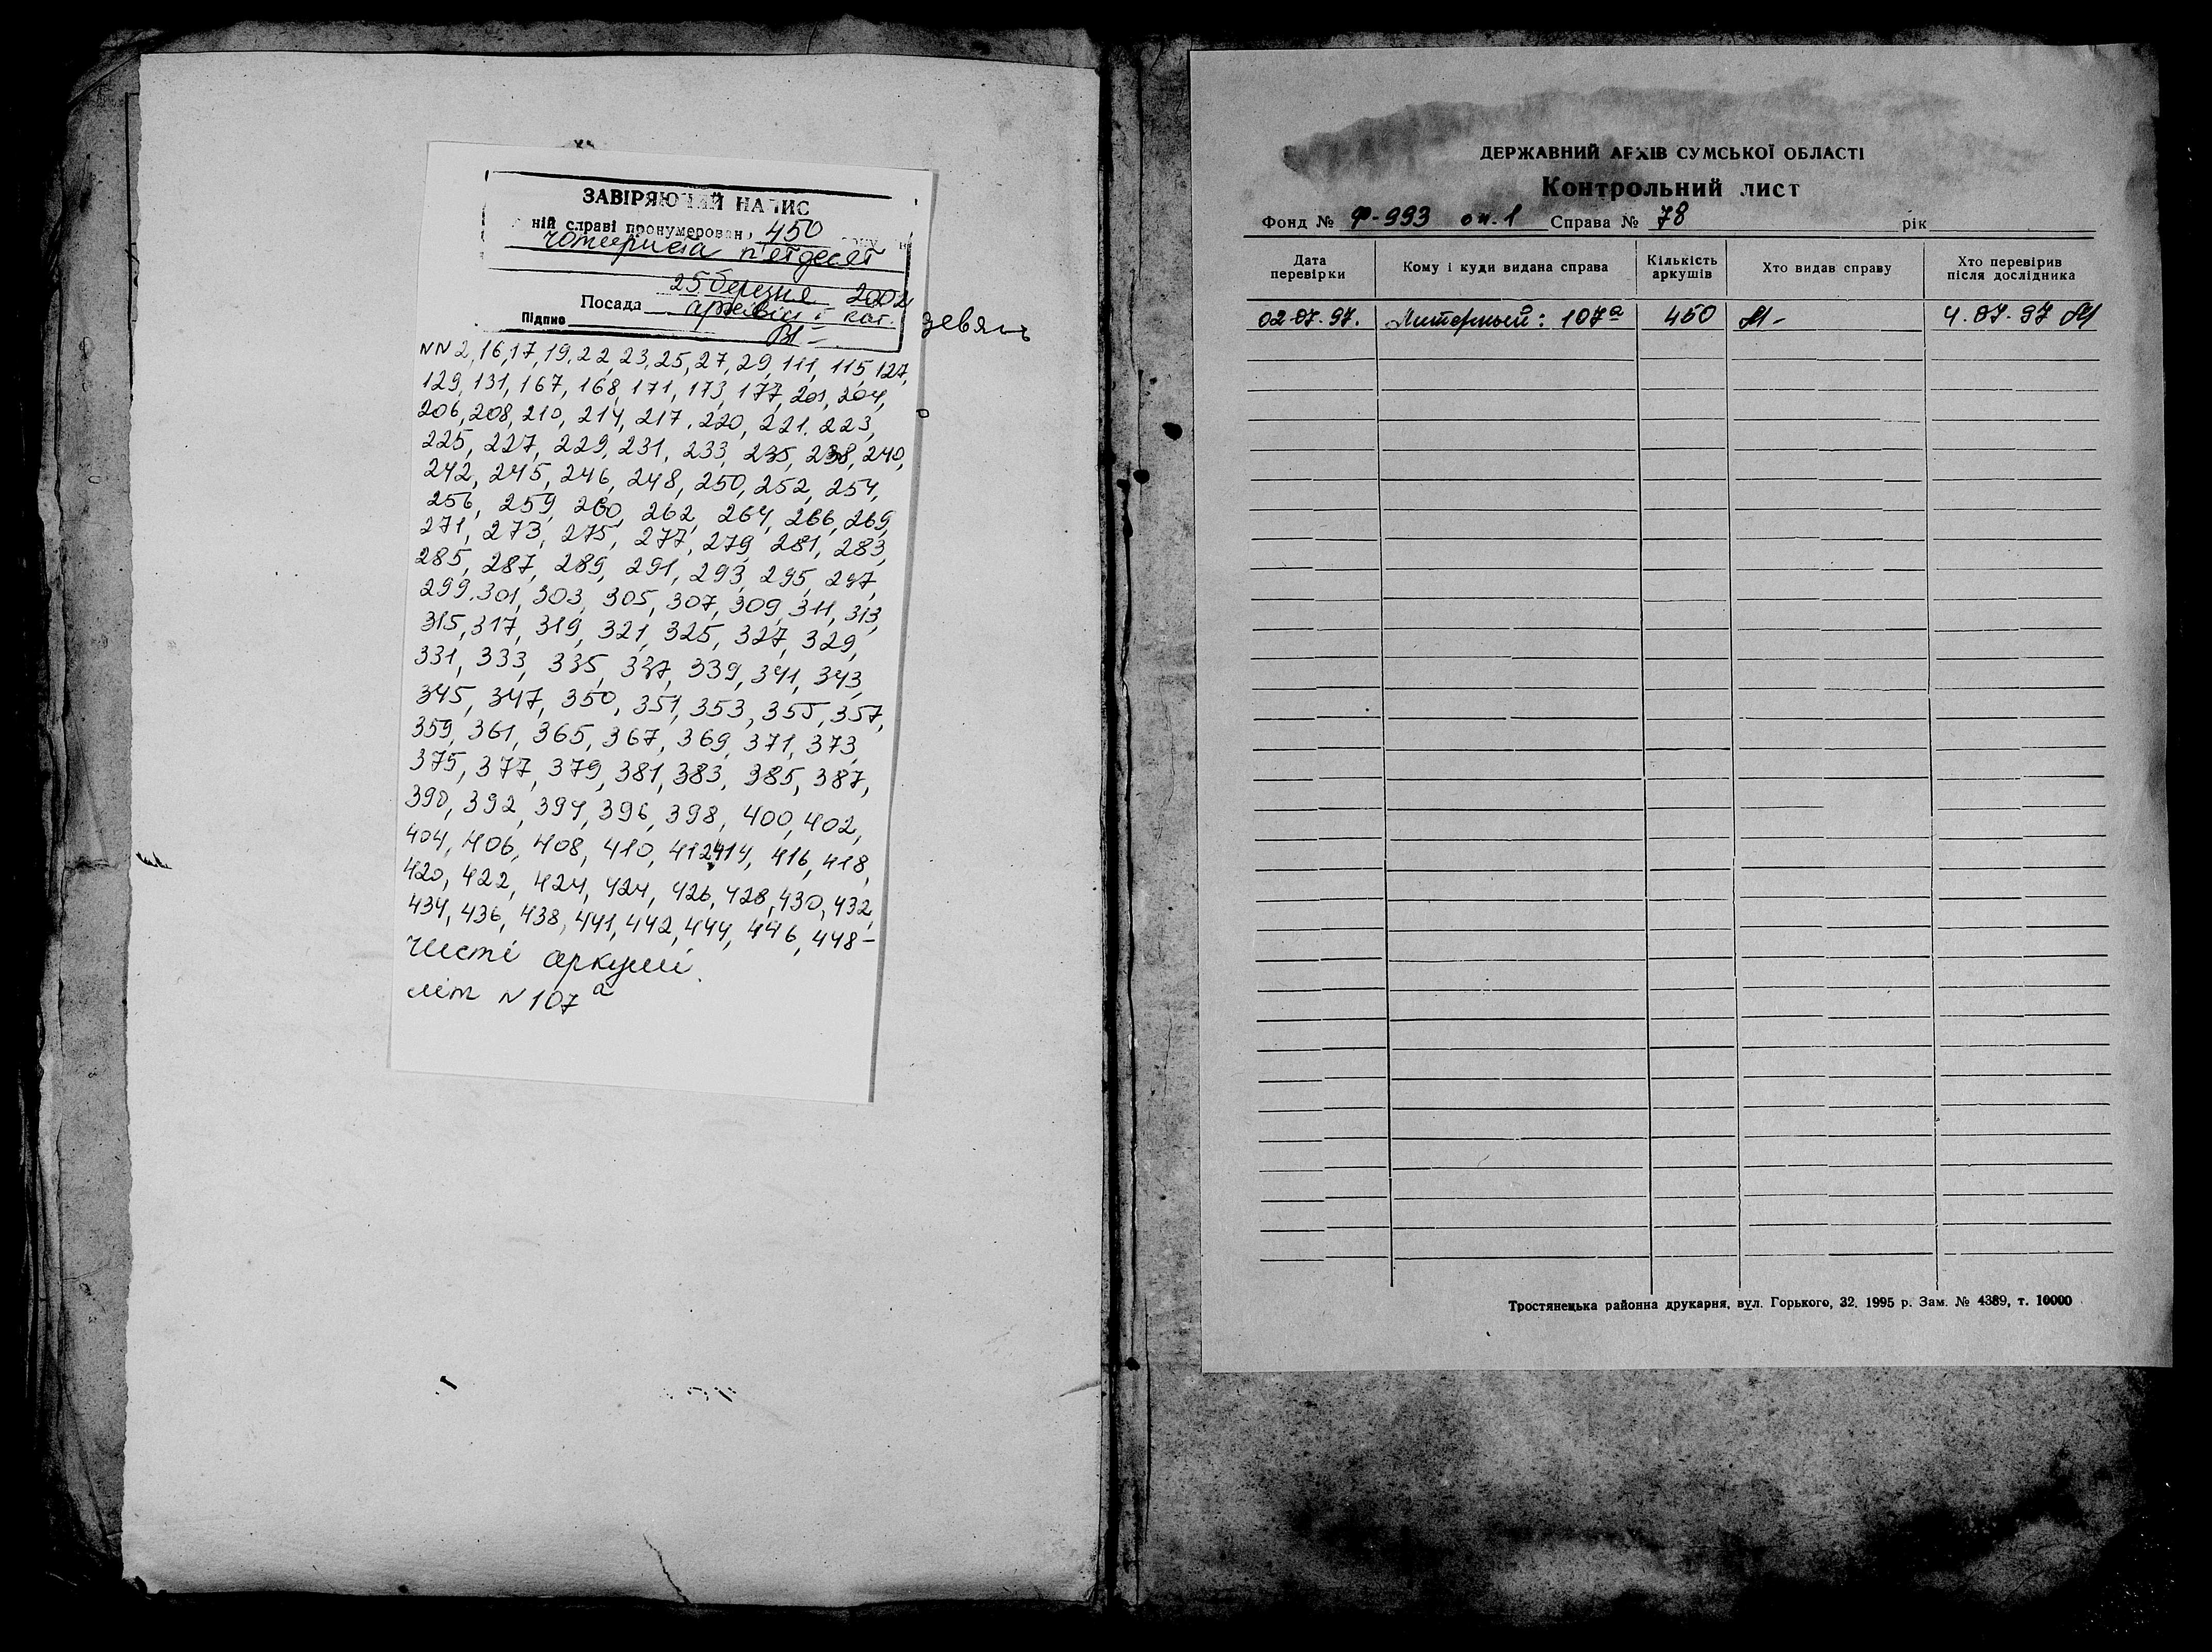 ЗАВІРЯЮЧИЙ НАПИС
ній справі пронумерован 450
чотириста п'ятдесят
25 березня 2002
Посада архівіст I кат.
Підпис
NN 2, 16, 17, 19, 22, 23, 25, 27, 29, 111, 115, 127,
129, 131, 167, 168, 171, 173, 177, 201, 204,
206, 208, 210, 214, 217, 220, 221, 223,
225, 227, 229, 231, 233, 235, 238, 240,
242, 245, 246, 248, 250, 252, 254,
256, 259, 260, 262, 264, 266, 269,
271, 273, 275, 277, 279, 281, 283,
285, 287, 289, 291, 293, 295, 297,
299, 301, 303, 305, 307, 309, 311, 313,
315, 317, 319, 321, 325, 327, 329,
331, 333, 335, 337, 339, 341, 343,
345, 347, 350, 351, 353, 355, 357,
359, 361, 365, 367, 369, 371, 373,
375, 377, 379, 381, 383, 385, 387,
390, 392, 394, 396, 398, 400, 402,
404, 406, 408, 410, 412, 414, 416, 418,
420, 422, 424, 424, 426, 428, 430, 432,
434, 436, 438, 441, 442, 444, 446, 448 –
чисті аркуші.
літ N 107а
ДЕРЖАВНИЙ АРХІВ СУМСЬКОЇ ОБЛАСТІ
Контрольний лист
Фонд № Ф-993 оп. 1 Справа № 78 рік
Дата перевірки Кому і куди видана справа Кількість аркушів Хто видав справу Хто перевірив після дослідника
02.07.97. Литерный: 107а 450 4.07.97
Тростянецька районна друкарня, вул. Горького, 32. 1995 р. Зам. № 4389, т. 10000